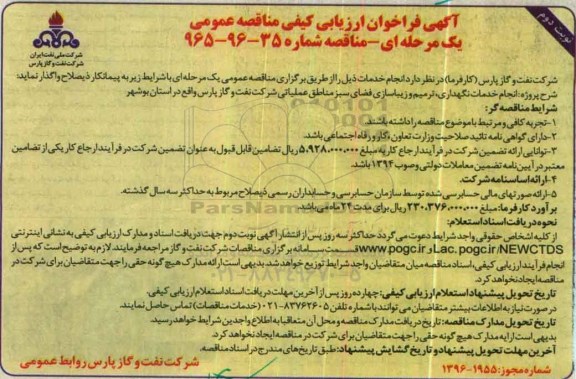 آگهی فراخوان ارزیابی کیفی مناقصه عمومی
یک مرحله ای-مناقصه شماره ۳۵-۹۶-۹۶۵
نوبت دوم
شرکت ملی نفت ایران
شرکت نفت و گاز پارس
شرکت نفت و گاز پارس (کارفرما) در نظر دارد انجام خدمات ذیل را از طریق برگزاری مناقصه عمومی یک مرحله ای با شرایط زیر به پیمانکار ذیصلاح واگذار نماید:
شرح پروژه: انجام خدمات نگهداری، ترمیم و زیباسازی فضای سبز مناطق عملیاتی شرکت نفت و گاز پارس واقع در استان بوشهر
شرایط مناقصه گر:
۱-تجربه کافی و مرتبط با موضوع مناقصه را داشته باشد.
۲-دارای گواهی نامه تائید صلاحیت وزارت تعاون، کار و رفاه اجتماعی باشد.
۳-توانایی ارائه تضمین شرکت در فرآیند ارجاع کار به مبلغ ۵،۹۲۸،۰۰۰،۰۰۰ ریال تضامین قابل قبول به عنوان تضمین شرکت در فرآیند ارجاع کار یکی از تضامین
معتبر در آیین نامه تضمین معاملات دولتی مصوب ۱۳۹۴ باشد.
۴-ارائه اساسنامه شرکت.
۵-ارائه صورتهای مالی حسابرسی شده توسط سازمان حسابرسی و حسابداران رسمی ذیصلاح مربوط به حداکثر سه سال گذشته.
برآورد کارفرما: مبلغ ۲۳۰،۳۷۶،۰۰۰،۰۰۰ ریال برای مدت ۲۴ ماه می باشد.
نحوه دریافت اسناد استعلام:
از کلیه اشخاص حقوقی واجد شرایط دعوت می گردد حداکثر سه روز پس از انتشار آگهی نوبت دوم جهت دریافت اسناد و مدارک ارزیابی کیفی به نشانی اینترنتی
Lac.pogc.ir/NEWCTDS و www.pogc.ir قسمت سامانه برگزاری مناقصات شرکت نفت و گاز مراجعه فرمایند. لازم به توضیح است که پس از
انجام فرآیند ارزیابی کیفی، اسناد مناقصه میان متقاضیان واجد شرایط توزیع خواهد شد. بدیهی است ارائه مدارک هیچ گونه حقی را جهت متقاضیان برای شرکت در
مناقصه ایجاد نخواهد کرد.
تاریخ تحویل پیشنهاد استعلام ارزیابی کیفی: چهارده روز پس از آخرین مهلت دریافت اسناد استعلام ارزیابی کیفی.
در صورت نیاز به اطلاعات بیشتر متقاضیان می توانند با شماره تلفن ۸۳۷۶۲۶۰۵-۰۲۱ (خدمات مناقصات) تماس حاصل نمایند.
تاریخ تحویل مدارک مناقصه: تاریخ دریافت مدارک مناقصه و محل آن متعاقبا به اطلاع واجدین شرایط خواهد رسید.
بدیهی است ارایه مدارک هیچ گونه حقی را جهت متقاضیان برای شرکت در مناقصه ایجاد نخواهد کرد.
آخرین مهلت تحویل پیشنهاد و تاریخ گشایش پیشنهاد: طبق تاریخ های مندرج در اسناد مناقصه.
شماره مجوز: ۱۳۹۶-۱۹۵۵
شرکت نفت و گاز پارس روابط عمومی